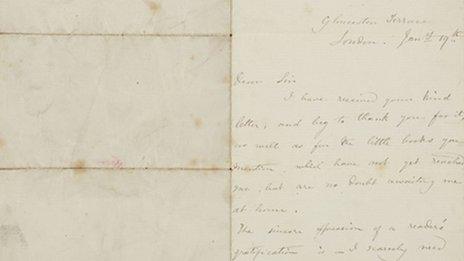 Gloucester Terrace
London. Jany. 19th
Dear Sir
I have received your kind
letter, and beg to thank you for it,
as well as for the little books you
mention, which have not yet reached
me, but are no doubt awaiting me
at home.
The sincere expression of a reader's
gratification is – I scarcely need